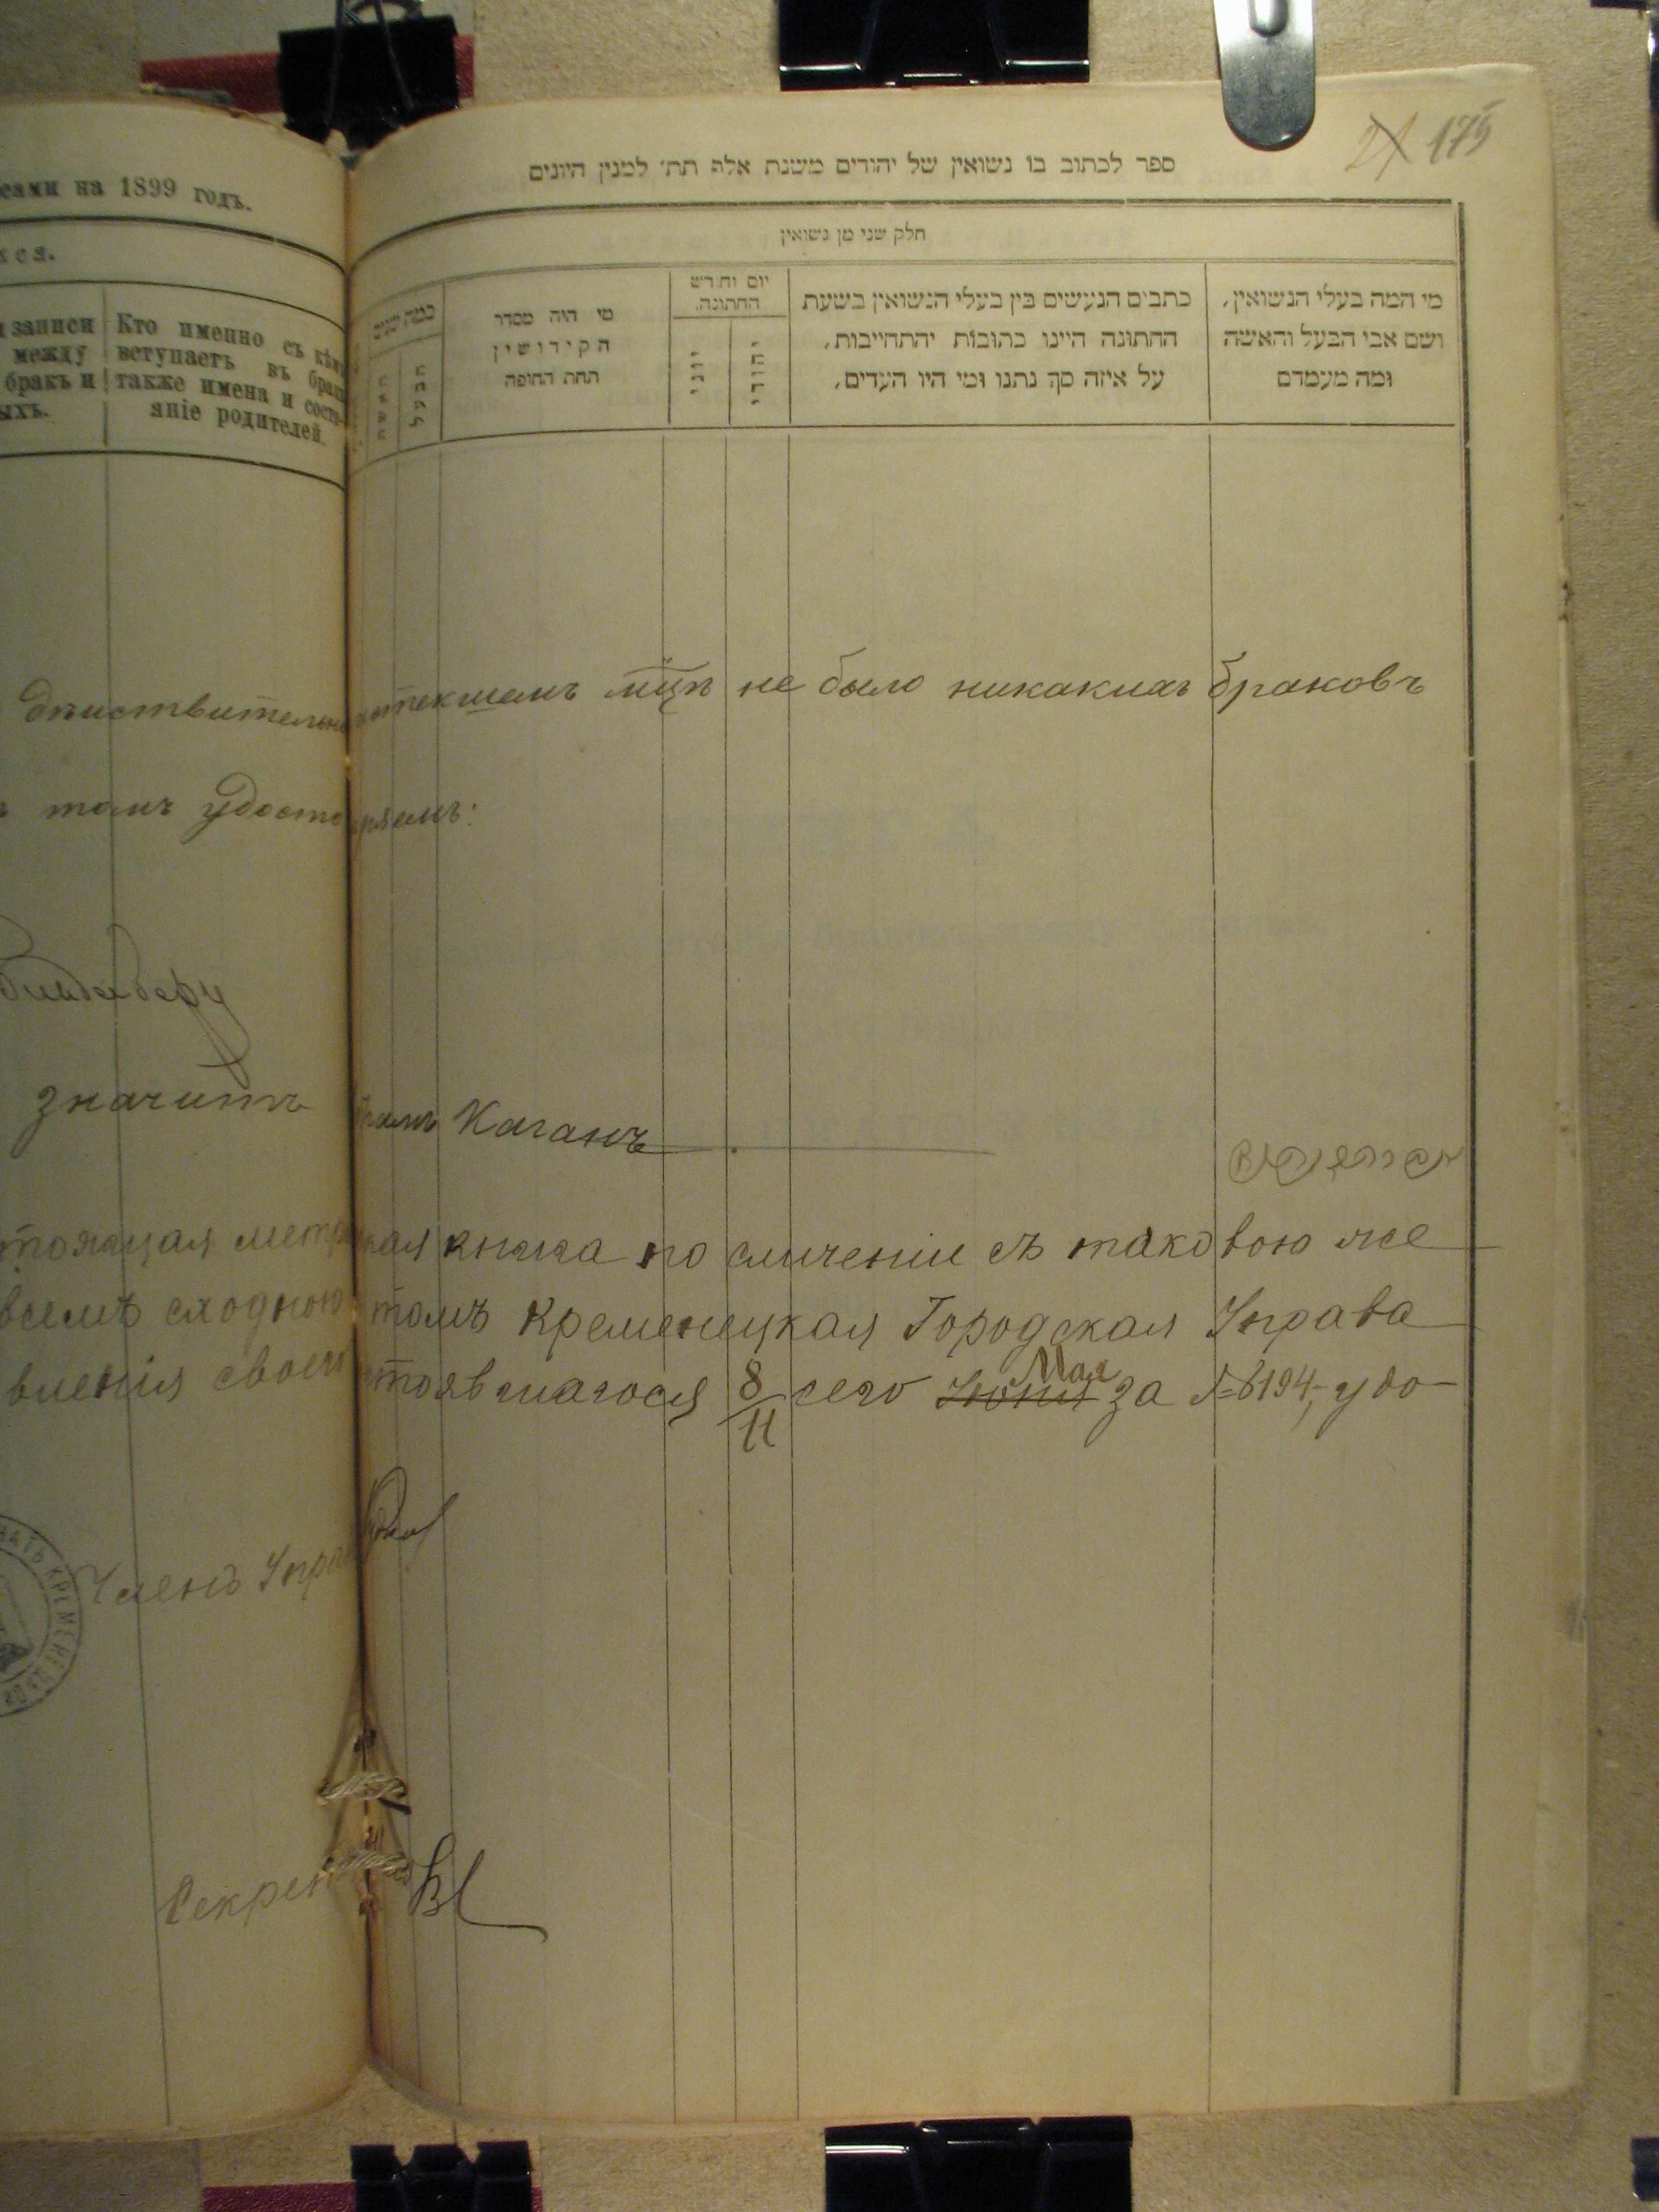 сами на 1899 годъ.
хся.
записи
между
бракъ и
ыхъ.
Кто именно съ кѣмъ
вступаетъ въ бракъ
также имена и состо-
яніе родителей.
175
ספר לכתוב בו נשואין של יהודים משנת אלף תת׳ למנין היונים
חלק שני מן נשואין
כמה שנים
האשה
הבעל
מי היה מסדר
הקידושין
תחת החופה
יום וחדש
החתונה.
יוני
יהודי
כתבים הנעשים בין בעלי הנשואין בשעת
החתונה היינו כתובות יהתחייבות,
על איזה סך נתנו ומי היו העדים,
מי המה בעלי הנשואין,
ושם אבי הבעל והאשה
ומה מעמדם
дѣйствительно истекшемъ мцѣ не было никакихъ браковъ
томъ удосто ряемъ:
значитъ Каганъ
стоящая метр кая книга по сличеніи съ таковою же
всемъ сходною томъ Кременецкая Городская Управа
вленія своего стоявшагося 8/11 сего Іюня Мая за № 6194, удо-
Членъ Управы
Секрет